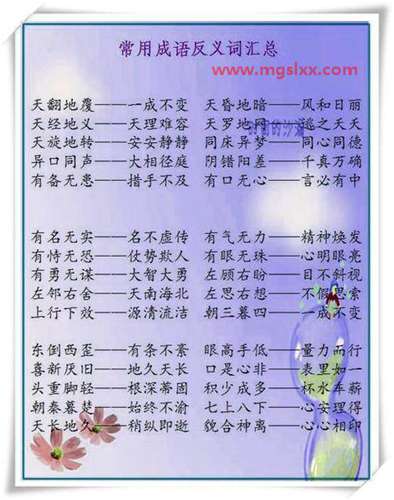 常用成语反义词汇总
www.mgslxx.com
天翻地覆——一成不变 天昏地暗——风和日丽
天经地义——天理难容 天罗地网——逃之夭夭
天旋地转——安安静静 同床异梦——同心同德
异口同声——大相径庭 阴错阳差——千真万确
有备无患——措手不及 有口无心——言必有中
有名无实——名不虚传 有气无力——精神焕发
有恃无恐——仗势欺人 有眼无珠——心明眼亮
有勇无谋——大智大勇 左顾右盼——目不斜视
左邻右舍——天南海北 左思右想——不假思索
上行下效——源清流洁 朝三暮四——一成不变
东倒西歪——有条不紊 眼高手低——量力而行
喜新厌旧——地久天长 口是心非——表里如一
头重脚轻——根深蒂固 积少成多——杯水车薪
朝秦暮楚——始终不渝 七上八下——心安理得
天长地久——稍纵即逝 貌合神离——心心相印